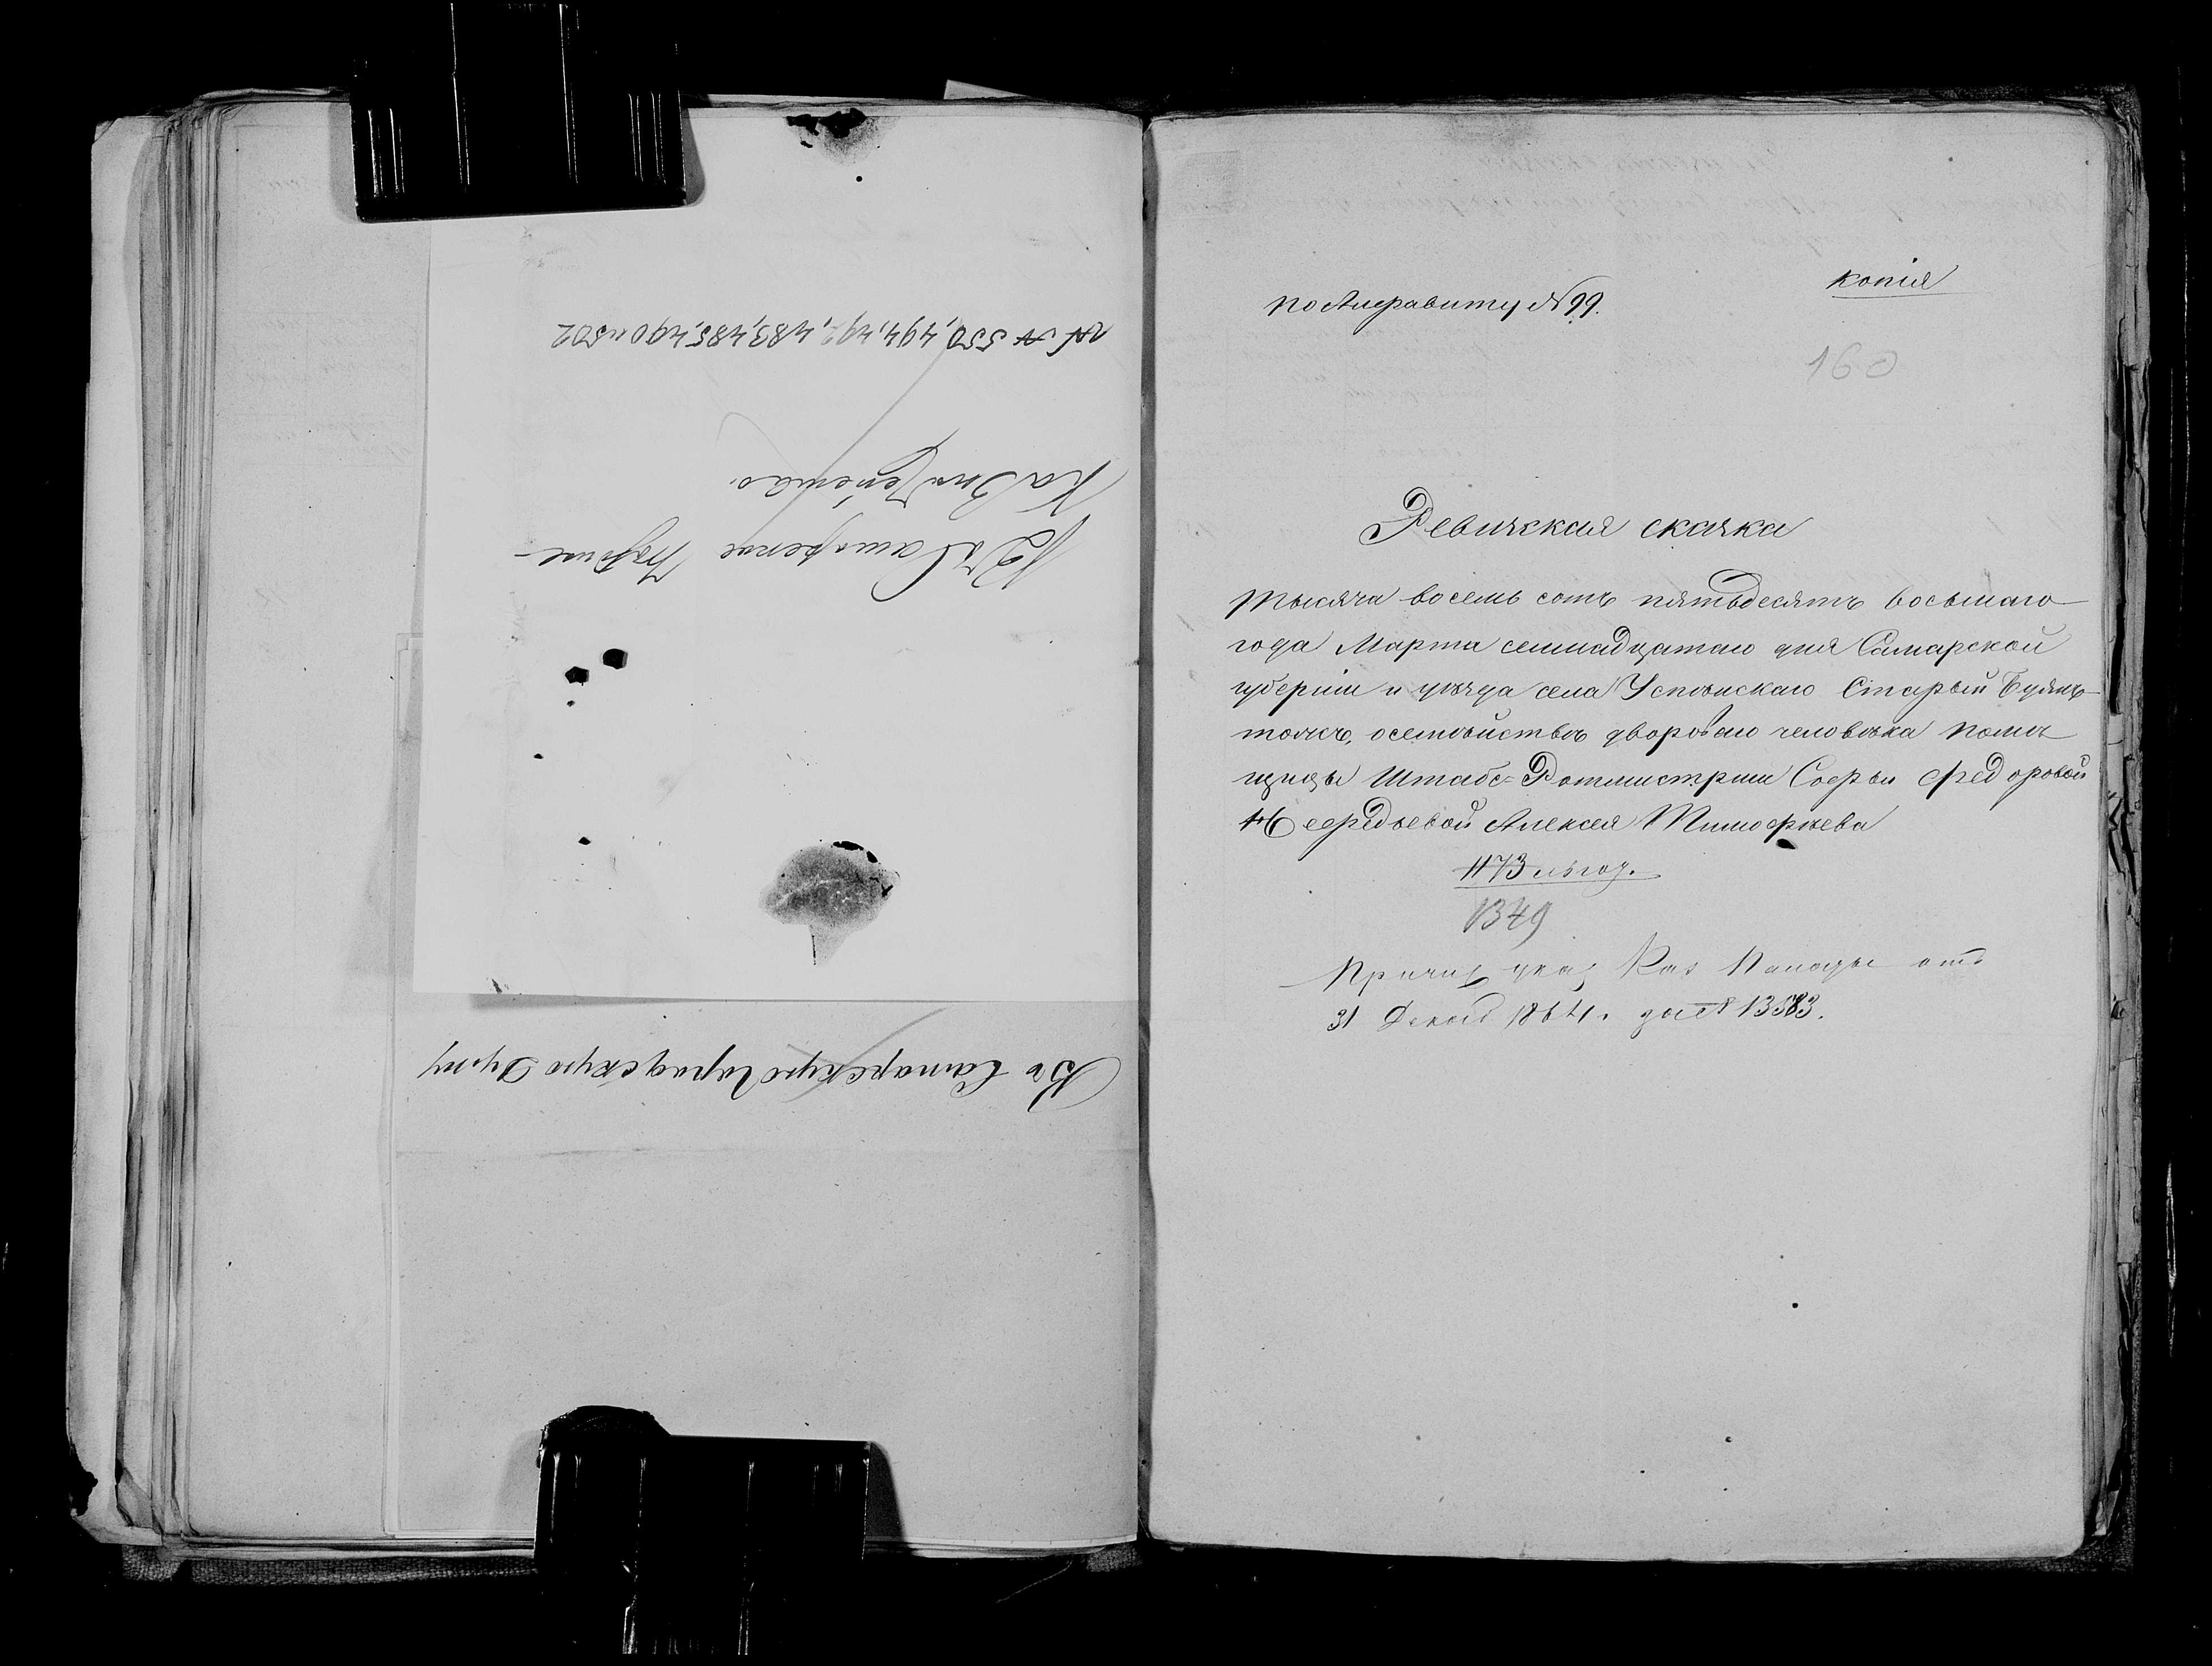 №№ 550, 494, 492, 483, 485, 490 и 502
Въ Самарскую Городскую Думу
копія
по Алфавиту № 99.
160
Ревижская скажка
тысяча восемь сотъ пятьдесятъ восьмаго
года Марта семнадцатаго дня Самарской
губерніи и уѣзда села Успѣнскаго Старый Буянъ
тожъ, осемѣйствѣ двороваго человѣка помѣ
щицы Штабс=Ротмистрши Софьи Федоровой
Мефедьевой Алексея Тимофѣева
1173
1349
Причис указ Каз Палаты отъ
31 Декаб 1864. за № 13583.